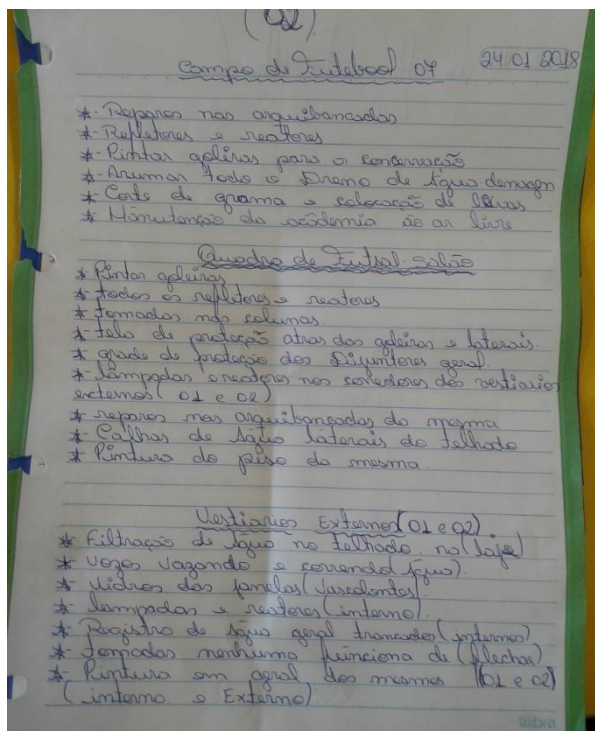 (02)
Campo de Futebool 07 24 01 2018
*- Reparos nas arquibancadas
*- Refletores e reatores
*- Pintar goleiras para a concervação
*- Arumar todo o Dreno de Água demagen
* Corte de grama e colocação de leivas
* Manutenção da acâdemia ão ar livre
Quadra de Futsal-salão
* Pintar goleiras
* todos os refletores e reatores
* tomadas nas colunas.
* tela de proteção atras das goleiras e laterais.
* grade de proteção dos Disjuntores geral.
* lâmpadas e reatores nos corredores dos vestiarios
externos (01 e 02)
* reparos nas arquibancadas da mesma
* Calhas de Água láterais do telhado
* Pintura do piso da mesma.
Vestiarios Externos (01 e 02)
* Filtração de água no telhado na (laje)
* vazos vazando e correndo (água).
* vidros das janelas (vasculantes).
* lampadas e reatores (interno).
* Registro de água geral trancados (internos)
* tomadas nenhuma funciona de (flechas)
* Pintura em geral dos mesmos (01 e 02)
(interno e Externo)
tilibra